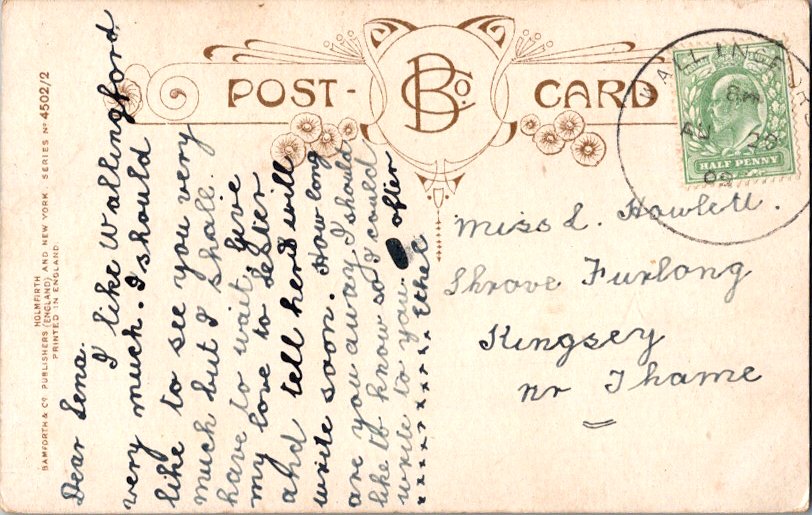 POST-CARD
BCo.
WALLINGFORD
8 PM
AU 28
HALF PENNY
HOLMFIRTH
BAMFORTH & Co. PUBLISHERS (ENGLAND) AND NEW YORK. SERIES No 4502/2
PRINTED IN ENGLAND.
Dear Lena.
I like Wallingford
very much. I should
like to see you very
much but I shall
have to wait. Give
my love to
and tell her I will
write soon. How long
are you away I should
like to know so I could
write to you ofter
x x x x x x x Ethel
Miss L. Howlett.
Shrove Furlong
Kingsey
nr Thame